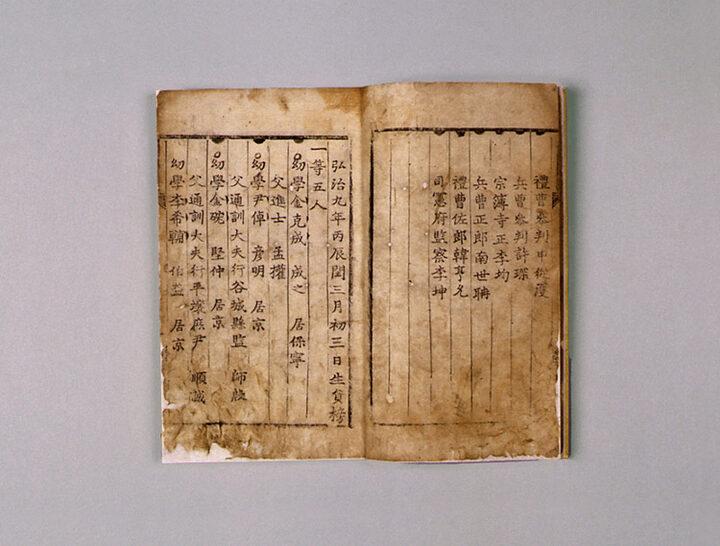 禮曹叅判申從濩
兵曹叅判許琛
宗簿寺正李均
兵曹正郎南世聃
禮曹佐郎韓亨允
司憲府監察李坤
弘治九年丙辰閏三月初三日生員榜
一等五人
幼學金克成 成之 居保寧
父進士 孟權
幼學尹倬 彦明 居京
父通訓大夫行谷城縣監 師殷
幼學金碗 堅仲 居京
父通訓大夫行平壤庶尹 順誠
幼學李希輔 伯益 居京